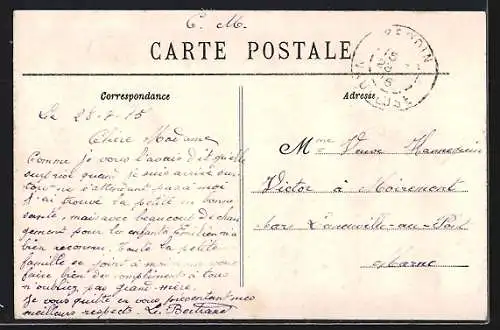 C. M.
CARTE POSTALE
VERDUN
MEUSE
Correspondance
Adresse
Le 28-7-15
Chère Madame
Comme je vous l'avais dit quelle
surprise quand je suis arrivé sur
tout ne s'attendant pas à moi
J'ai trouvé la petite en bonne
santé, mais avec beaucoup de chan
gement pour les enfants Emilien m'a
bien reconnu. Toute la petite
famille se joint à moi pour vous
faire bien des compliments à tous
n'oubliez pas grand-mère.
Je vous quitte en vous présentant mes
meilleurs respects. L. Bertrand
Mme Veuve Hannequin
Victor à Moiremont
par Laneuville-au-Pont
Marne